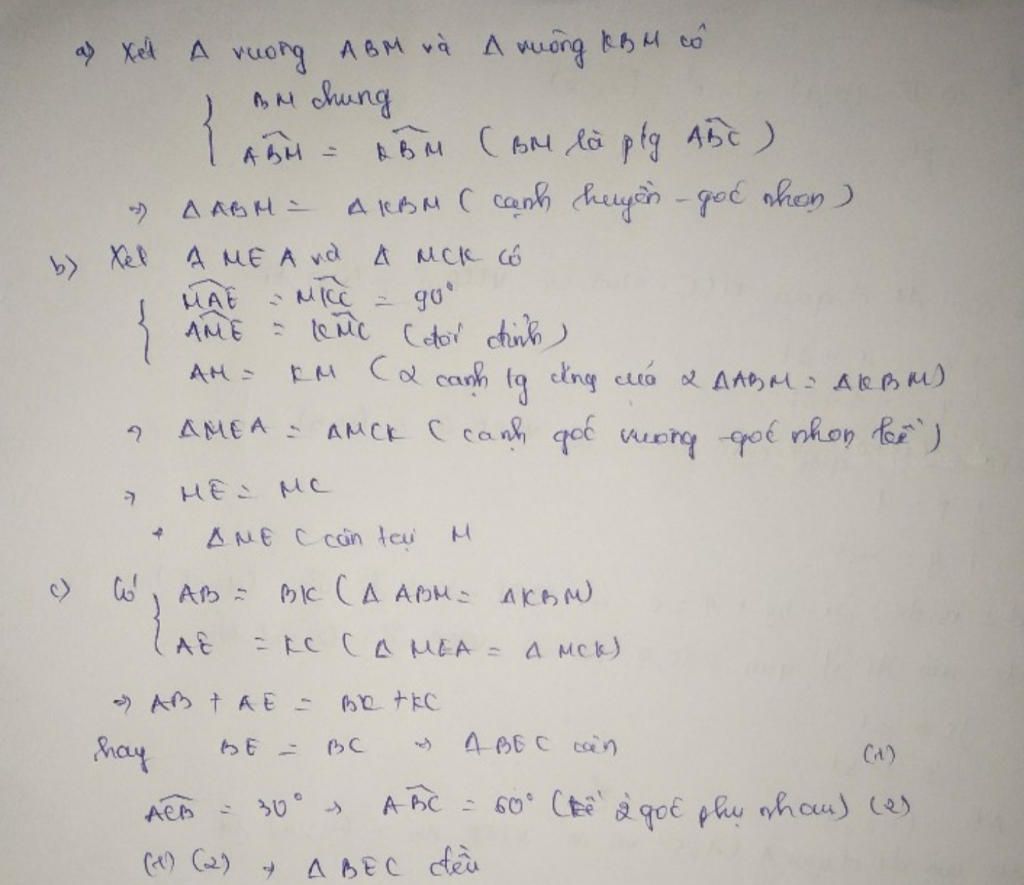 a) Xét Δ vuông ABM và Δ vuông KBM có
{ BM chung
ABM = KBM ( BM là p/g ABC )
=> ΔABM = ΔKBM ( cạnh huyền - góc nhọn )
b) Xét Δ MEA và Δ MCK có
{ MAE = MKC = 90°
AME = KMC (đối đỉnh)
AM = KM ( 2 cạnh tg ứng của 2 ΔABM = ΔKBM )
=> ΔMEA = ΔMCK ( cạnh góc vuông - góc nhọn kề )
=> ME = MC
=> ΔMEC cân tại M
c) Có { AB = BK ( Δ ABM = ΔKBM )
AE = KC ( Δ MEA = Δ MCK )
=> AB + AE = BK + KC
hay BE = BC => ΔBEC cân (1)
ACB = 30° => ABC = 60° ( 2 góc phụ nhau ) (2)
(1) (2) => ΔBEC đều